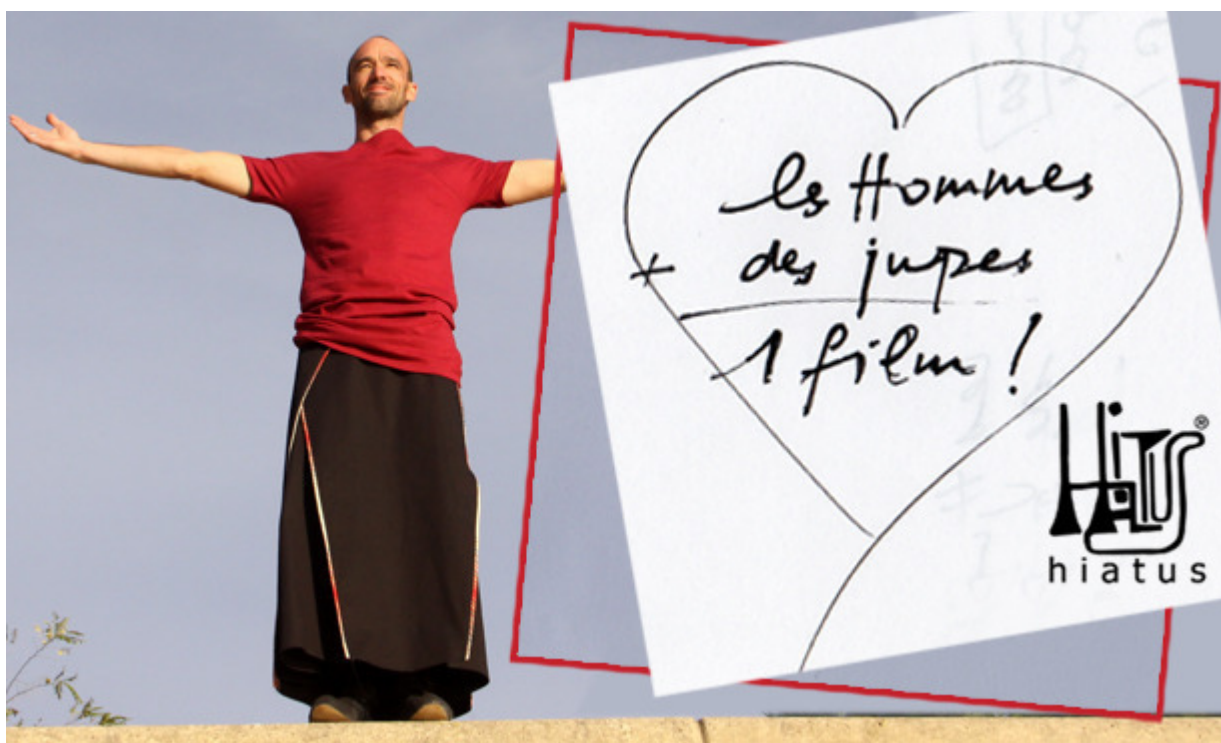 les Hommes
+ des jupes
1 film !
HiATUS®
hiatus